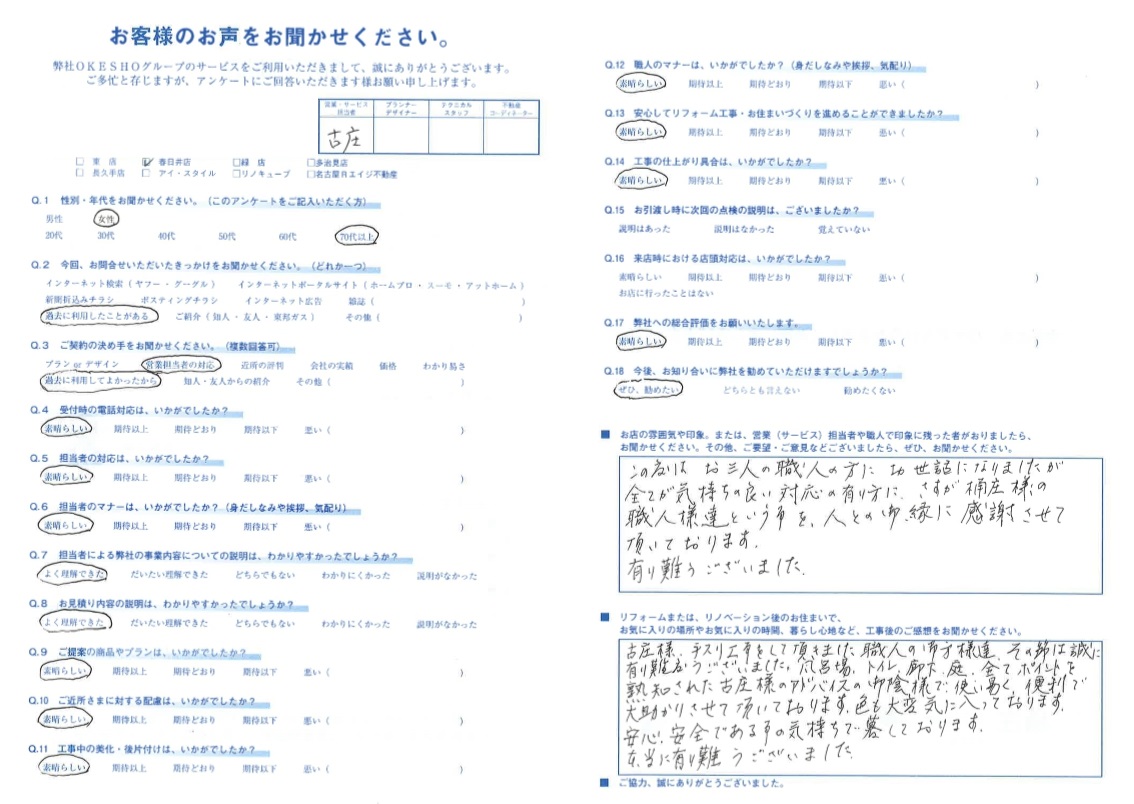 お客様のお声をお聞かせください。
弊社OKESHOグループのサービスをご利用いただきまして、誠にありがとうございます。
ご多忙と存じますが、アンケートにご回答いただきます様お願い申し上げます。
営業・サービス担当者 プランナーデザイナー テクニカルスタッフ 不動産コーディネーター
古庄
□ 東 店 ☑ 春日井店 □緑 店 □多治見店
□ 長久手店 □ アイ・スタイル □リノキューブ □名古屋Rエイジ不動産
Q.1 性別・年代をお聞かせください。（このアンケートをご記入いただく方）
男性 女性
20代 30代 40代 50代 60代 70代以上
Q.2 今回、お問合せいただいたきっかけをお聞かせください。（どれか一つ）
インターネット検索（ヤフー・グーグル） インターネットポータルサイト（ホームプロ・スーモ・アットホーム）
新聞折込みチラシ ポスティングチラシ インターネット広告 雑誌（ ）
過去に利用したことがある ご紹介（知人・友人・東邦ガス） その他（ ）
Q.3 ご契約の決め手をお聞かせください。（複数回答可）
プラン or デザイン 営業担当者の対応 近所の評判 会社の実績 価格 わかり易さ
過去に利用してよかったから 知人・友人からの紹介 その他（ ）
Q.4 受付時の電話対応は、いかがでしたか？
素晴らしい 期待以上 期待どおり 期待以下 悪い（ ）
Q.5 担当者の対応は、いかがでしたか？
素晴らしい 期待以上 期待どおり 期待以下 悪い（ ）
Q.6 担当者のマナーは、いかがでしたか？（身だしなみや挨拶、気配り）
素晴らしい 期待以上 期待どおり 期待以下 悪い（ ）
Q.7 担当者による弊社の事業内容についての説明は、わかりやすかったでしょうか？
よく理解できた だいたい理解できた どちらでもない わかりにくかった 説明がなかった
Q.8 お見積り内容の説明は、わかりやすかったでしょうか？
よく理解できた だいたい理解できた どちらでもない わかりにくかった 説明がなかった
Q.9 ご提案の商品やプランは、いかがでしたか？
素晴らしい 期待以上 期待どおり 期待以下 悪い（ ）
Q.10 ご近所さまに対する配慮は、いかがでしたか？
素晴らしい 期待以上 期待どおり 期待以下 悪い（ ）
Q.11 工事中の美化・後片付けは、いかがでしたか？
素晴らしい 期待以上 期待どおり 期待以下 悪い（ ）
Q.12 職人のマナーは、いかがでしたか？（身だしなみや挨拶、気配り）
素晴らしい 期待以上 期待どおり 期待以下 悪い（ ）
Q.13 安心してリフォーム工事・お住まいづくりを進めることができましたか？
素晴らしい 期待以上 期待どおり 期待以下 悪い（ ）
Q.14 工事の仕上がり具合は、いかがでしたか？
素晴らしい 期待以上 期待どおり 期待以下 悪い（ ）
Q.15 お引渡し時に次回の点検の説明は、ございましたか？
説明はあった 説明はなかった 覚えていない
Q.16 来店時における店頭対応は、いかがでしたか？
素晴らしい 期待以上 期待どおり 期待以下 悪い（ ）
お店に行ったことはない
Q.17 弊社への総合評価をお願いいたします。
素晴らしい 期待以上 期待どおり 期待以下 悪い（ ）
Q.18 今後、お知り合いに弊社を勧めていただけますでしょうか？
ぜひ、勧めたい どちらとも言えない 勧めたくない
■ お店の雰囲気や印象。または、営業（サービス）担当者や職人で印象に残った者がおりましたら、
お聞かせください。その他、ご要望・ご意見などございましたら、ぜひ、お聞かせください。
この度は お三人の職人の方に お世話になりましたが
全てが気持ちの良い対応の有り方に、さすが桶庄様の
職人様達という事を、人との御縁に感謝させて
頂いております。
有り難うございました。
■ リフォームまたは、リノベーション後のお住まいで、
お気に入りの場所やお気に入りの時間、暮らし心地など、工事後のご感想をお聞かせください。
古庄様、手スリ工事をして頂きました職人の御方様達、その節は誠に
有り難うございました。風呂場、トイレ、廊下、庭、全てポイントを
熟知された古庄様のアドバイスの御陰様で、使い易く、便利で
大助かりさせて頂いております。色も大変気に入っております。
安心、安全である事の気持ちで暮しております。
本当に有り難うございました。
■ ご協力、誠にありがとうございました。